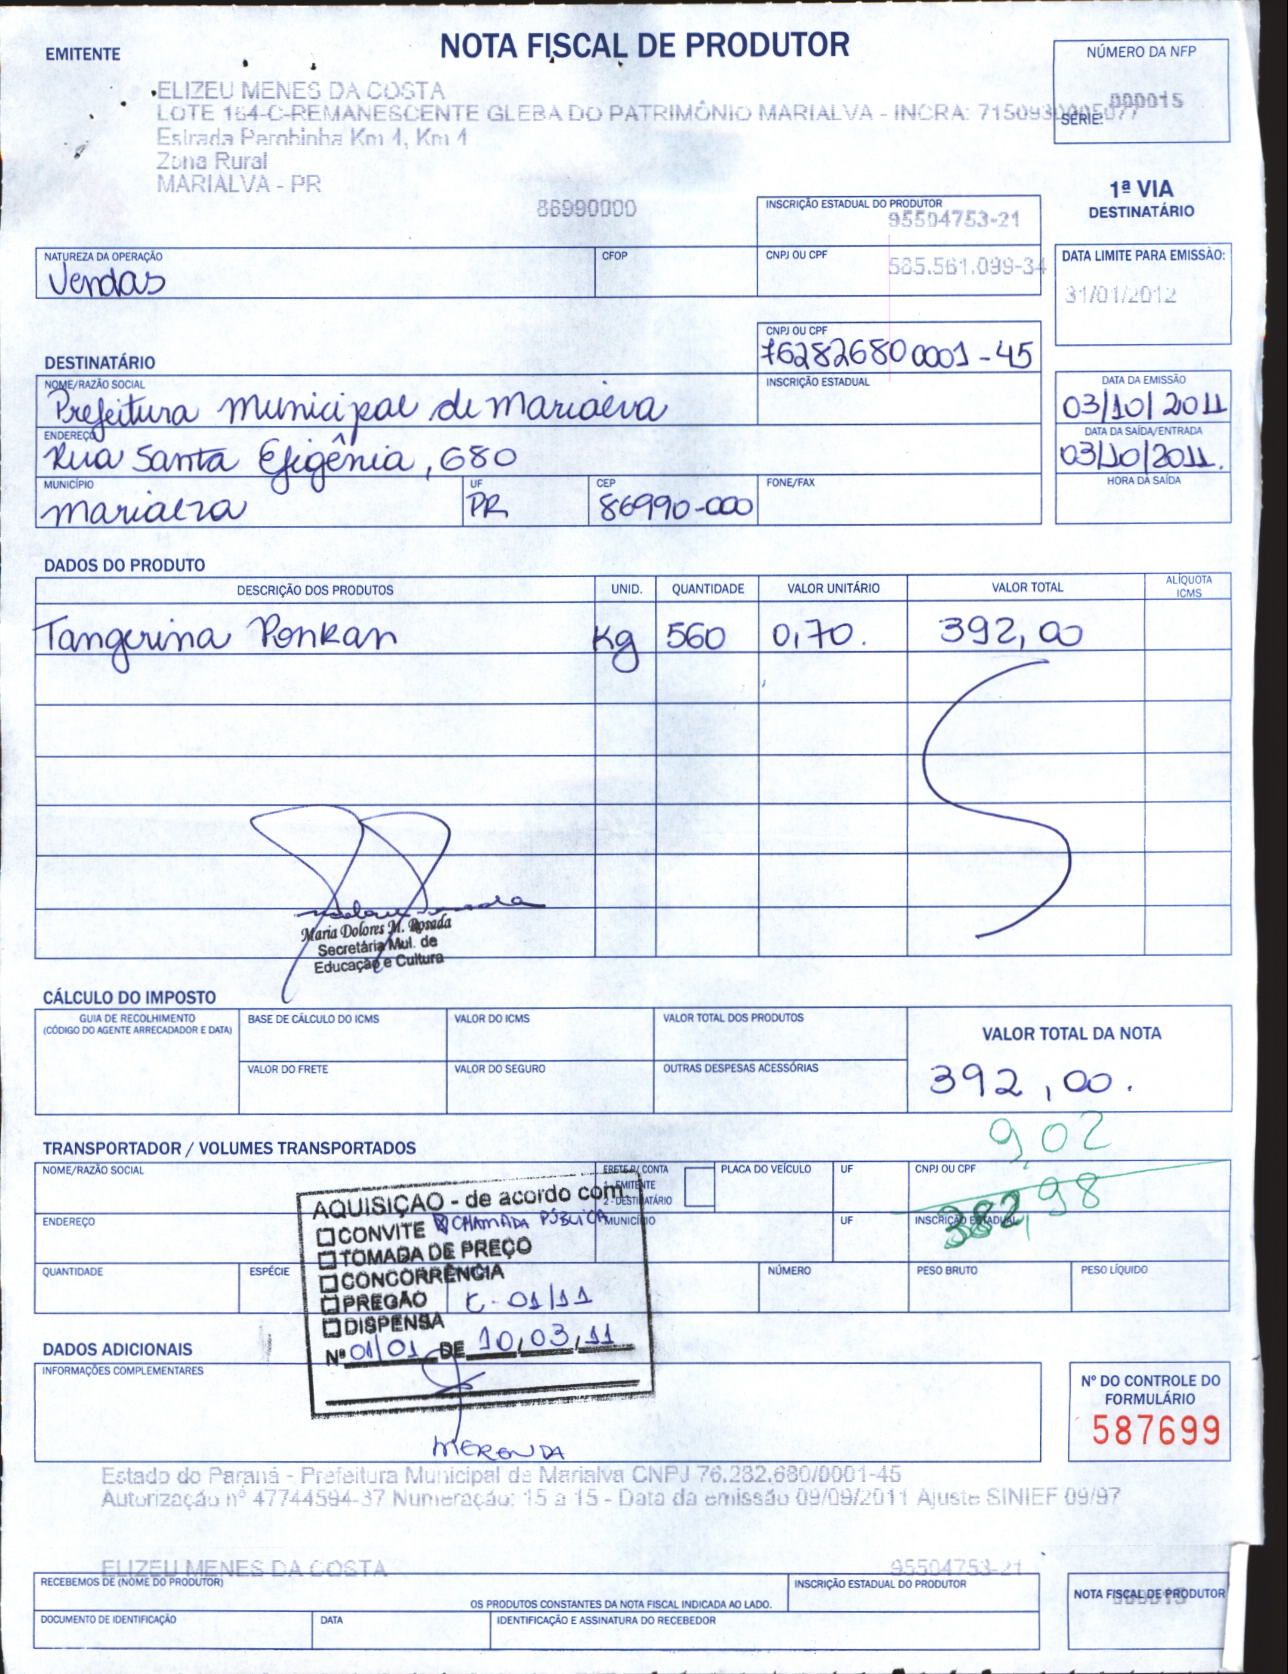 EMITENTE
NOTA FISCAL DE PRODUTOR
NÚMERO DA NFP
000015
SÉRIE:
ELIZEU MENES DA COSTA
LOTE 164-C-REMANESCENTE GLEBA DO PATRIMÔNIO MARIALVA - INCRA: 7150930005077
Estrada Parnhinha Km 1, Km 1
Zona Rural
MARIALVA - PR
86990000
1ª VIA
DESTINATÁRIO
INSCRIÇÃO ESTADUAL DO PRODUTOR
95504753-21
NATUREZA DA OPERAÇÃO
Vendas
CFOP
CNPJ OU CPF
585.561.099-34
DATA LIMITE PARA EMISSÃO:
31/01/2012
CNPJ OU CPF
762826800001-45
DESTINATÁRIO
NOME/RAZÃO SOCIAL
Prefeitura Municipal de Marialva
INSCRIÇÃO ESTADUAL
DATA DA EMISSÃO
03/10/2011
ENDEREÇO
Rua Santa Efigênia, 680
DATA DA SAÍDA/ENTRADA
03/10/2011.
MUNICÍPIO
Marialva
UF
PR
CEP
86990-000
FONE/FAX
HORA DA SAÍDA
DADOS DO PRODUTO
DESCRIÇÃO DOS PRODUTOS UNID. QUANTIDADE VALOR UNITÁRIO VALOR TOTAL ALÍQUOTA ICMS
Tangerina Ponkan Kg 560 0,70. 392,00
Maria Dolores M. Rosada
Secretária Mul. de
Educação e Cultura
CÁLCULO DO IMPOSTO
GUIA DE RECOLHIMENTO
(CÓDIGO DO AGENTE ARRECADADOR E DATA)
BASE DE CÁLCULO DO ICMS
VALOR DO ICMS
VALOR TOTAL DOS PRODUTOS
VALOR TOTAL DA NOTA
392,00.
VALOR DO FRETE
VALOR DO SEGURO
OUTRAS DESPESAS ACESSÓRIAS
9,02
TRANSPORTADOR / VOLUMES TRANSPORTADOS
NOME/RAZÃO SOCIAL
FRETE P/ CONTA
1 - EMITENTE
2 - DESTINATÁRIO
PLACA DO VEÍCULO
UF
CNPJ OU CPF
382,98
ENDEREÇO
MUNICÍPIO
UF
INSCRIÇÃO ESTADUAL
QUANTIDADE
ESPÉCIE
NÚMERO
PESO BRUTO
PESO LÍQUIDO
AQUISIÇÃO - de acordo com
CONVITE CHAMADA PÚBLICA
TOMADA DE PREÇO
CONCORRÊNCIA
PREGÃO C-01/11
DISPENSA
Nº 01/01 DE 10,03,11
DADOS ADICIONAIS
INFORMAÇÕES COMPLEMENTARES
MERENDA
Nº DO CONTROLE DO
FORMULÁRIO
587699
Estado do Paraná - Prefeitura Municipal de Marialva CNPJ 76.282.680/0001-45
Autorização nº 47744594-37 Numeração: 15 a 15 - Data da emissão 09/09/2011 Ajuste SINIEF 09/97
ELIZEU MENES DA COSTA
95504753-21
RECEBEMOS DE (NOME DO PRODUTOR)
OS PRODUTOS CONSTANTES DA NOTA FISCAL INDICADA AO LADO.
INSCRIÇÃO ESTADUAL DO PRODUTOR
NOTA FISCAL DE PRODUTOR
000015
DOCUMENTO DE IDENTIFICAÇÃO
DATA
IDENTIFICAÇÃO E ASSINATURA DO RECEBEDOR